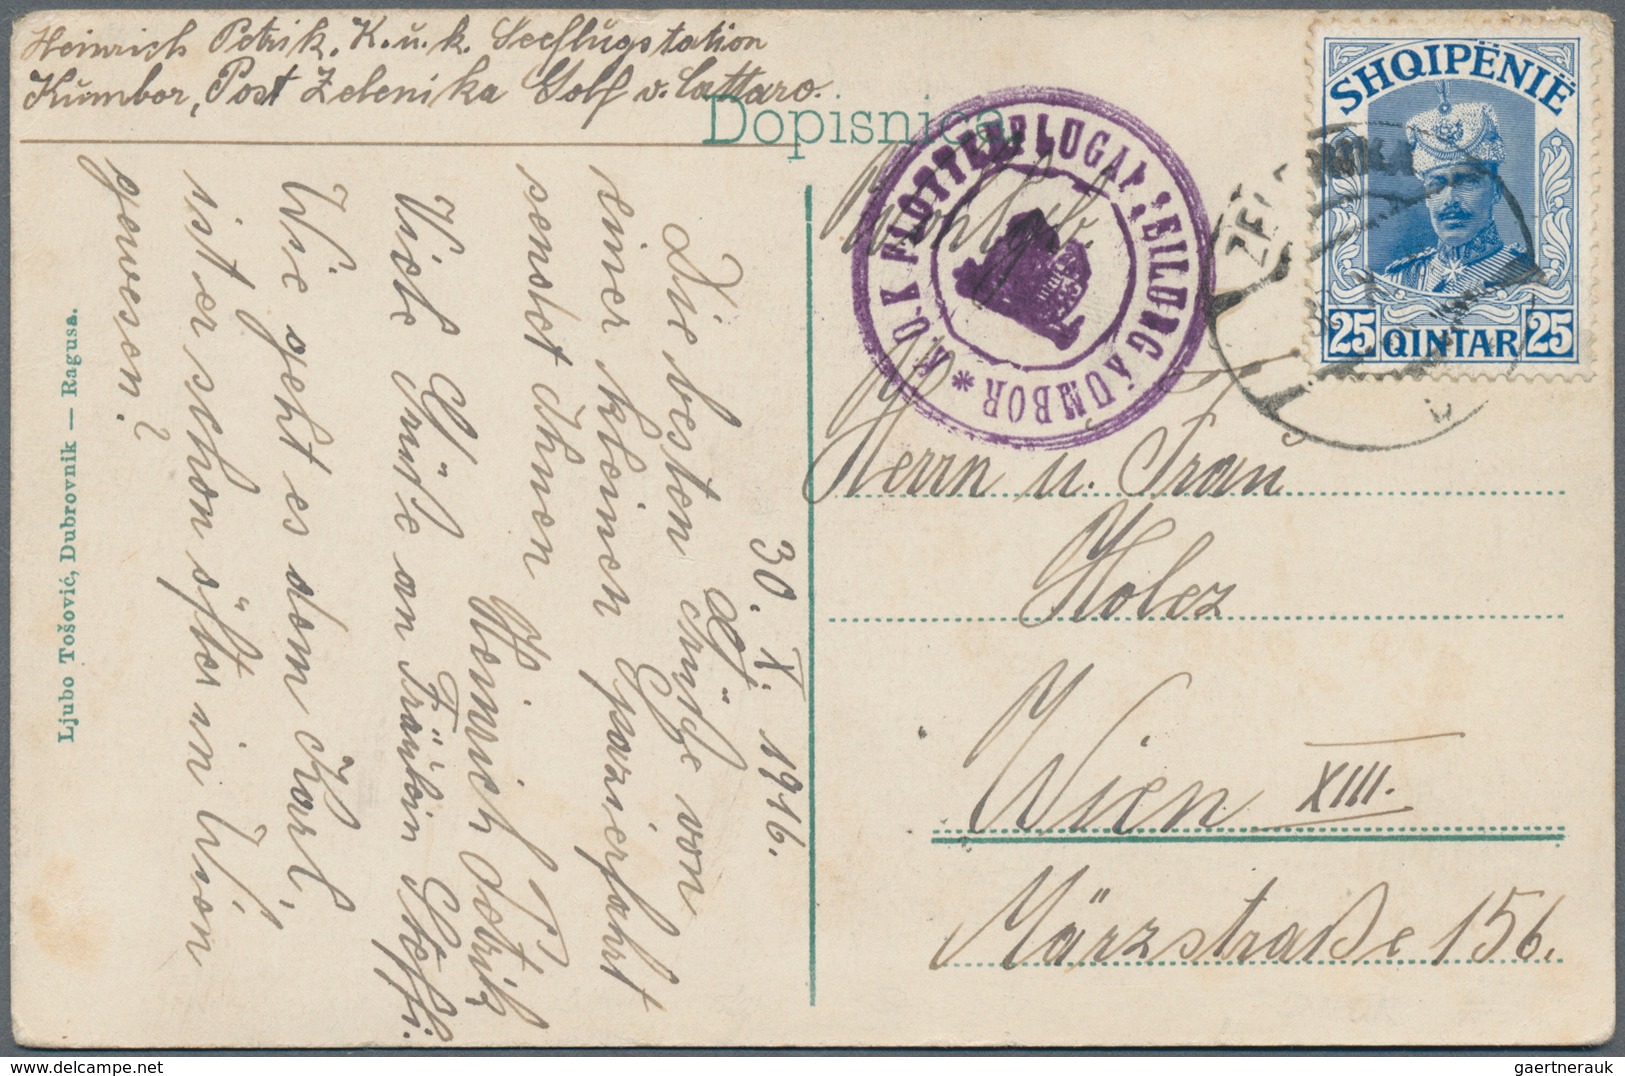 Heinrich Petrik, K.u.k. Seeflugstation
Kumbor, Post Zelenika Golf v. Cattaro.
Dopisnica
Wohlgeb.
K.U.K. FLOTTENFLUGABTEILUNG KUMBOR *
ZELENIKA
SHQIPËNIË
25 QINTAR 25
Herrn u. Frau
Holez
Wien XIII.
Märzstraße 156.
30. X. 1916.
Die besten Grüße von
einer kleinen Spazierfahrt
sendet Ihnen
Heinrich Petrik
Viele Grüße an Fräulein Steffi.
Wie geht es dem Karl,
ist er schon öfter in Wien
gewesen?
Ljubo Tošović, Dubrovnik — Ragusa.
delcampe.net
gaertnerauk